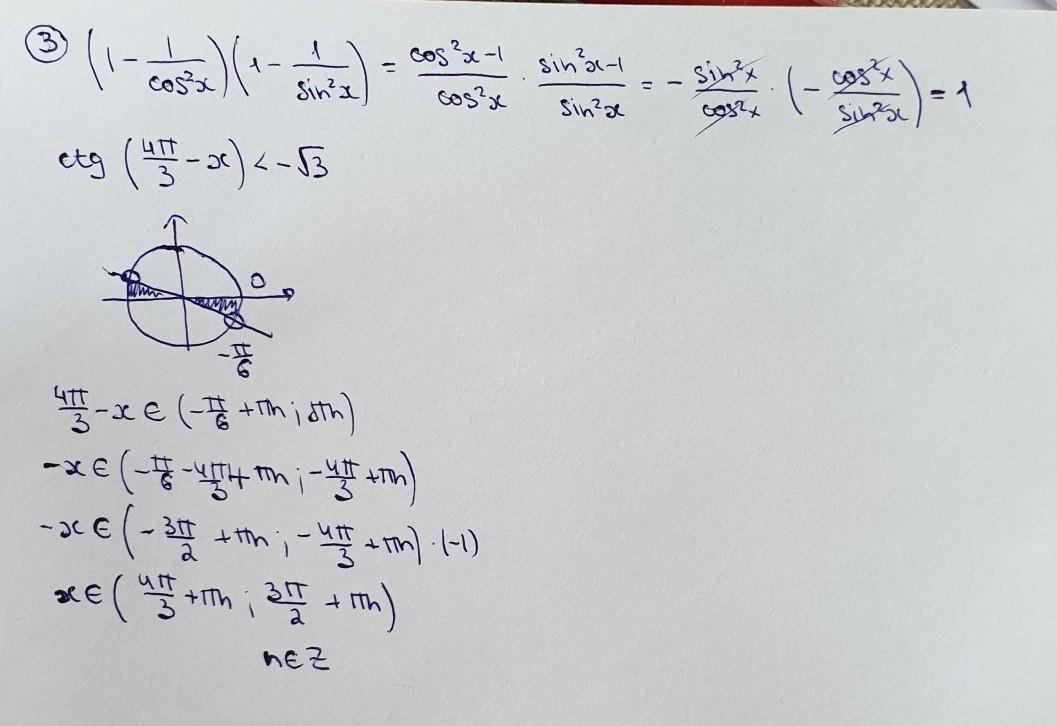 ③ (1 - 1/cos²x)(1 - 1/sin²x) = (cos²x-1)/cos²x · (sin²x-1)/sin²x = - sin²x/cos²x · (- cos²x/sin²x) = 1
ctg (4π/3 - x) < -√3
0
-π/6
4π/3 - x ∈ (-π/6 + πn ; πn)
-x ∈ (-π/6 - 4π/3 + πn ; -4π/3 + πn)
-x ∈ (-3π/2 + πn ; -4π/3 + πn) · (-1)
x ∈ (4π/3 + πn ; 3π/2 + πn)
n ∈ Z